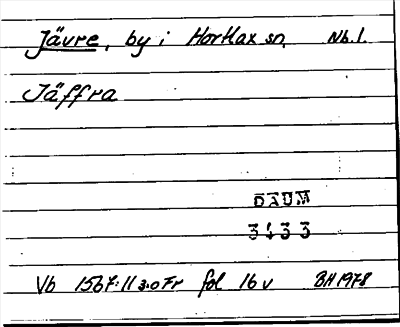 Jävre, by i Hortlax sn, Nb.l.
Jäffra
DAUM
3433
Vb 1567:11 3:o Fr fol 16 v BH 1978